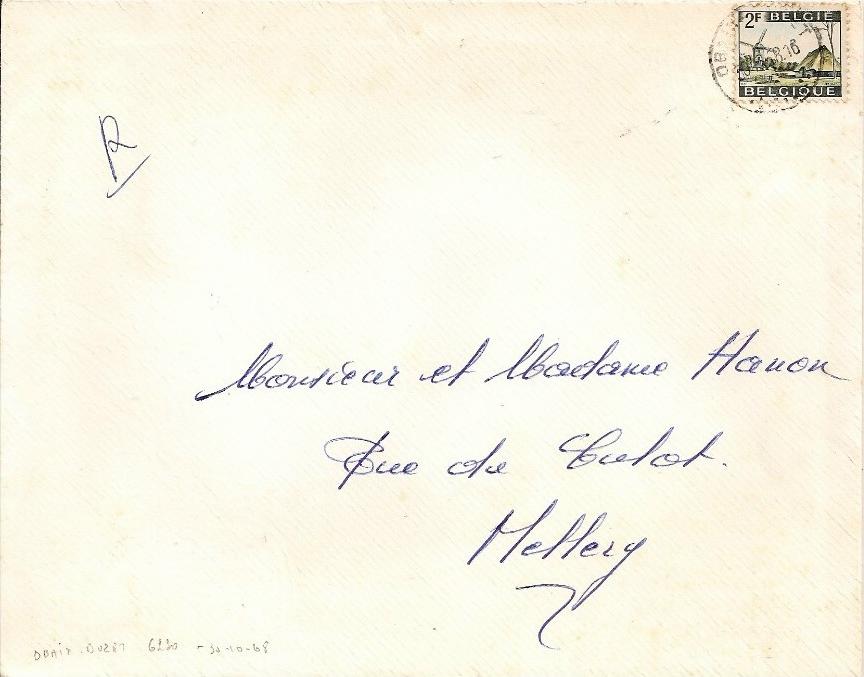 2F BELGIË
BELGIQUE
R
Monsieur et Madame Hanon
Rue du Culot.
Mellery
6230 -30-10-68